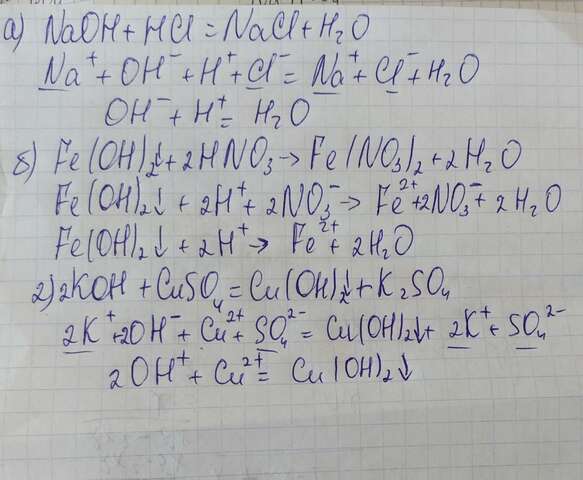 а) NaOH + HCl = NaCl + H₂O
Na⁺ + OH⁻ + H⁺ + Cl⁻ = Na⁺ + Cl⁻ + H₂O
OH⁻ + H⁺ = H₂O
б) Fe(OH)₂↓ + 2HNO₃ → Fe(NO₃)₂ + 2H₂O
Fe(OH)₂↓ + 2H⁺ + 2NO₃⁻ → Fe²⁺ + 2NO₃⁻ + 2H₂O
Fe(OH)₂↓ + 2H⁺ → Fe²⁺ + 2H₂O
2) 2KOH + CuSO₄ = Cu(OH)₂↓ + K₂SO₄
2K⁺ + 2OH⁻ + Cu²⁺ + SO₄²⁻ = Cu(OH)₂↓ + 2K⁺ + SO₄²⁻
2OH⁺ + Cu²⁺ = Cu(OH)₂↓